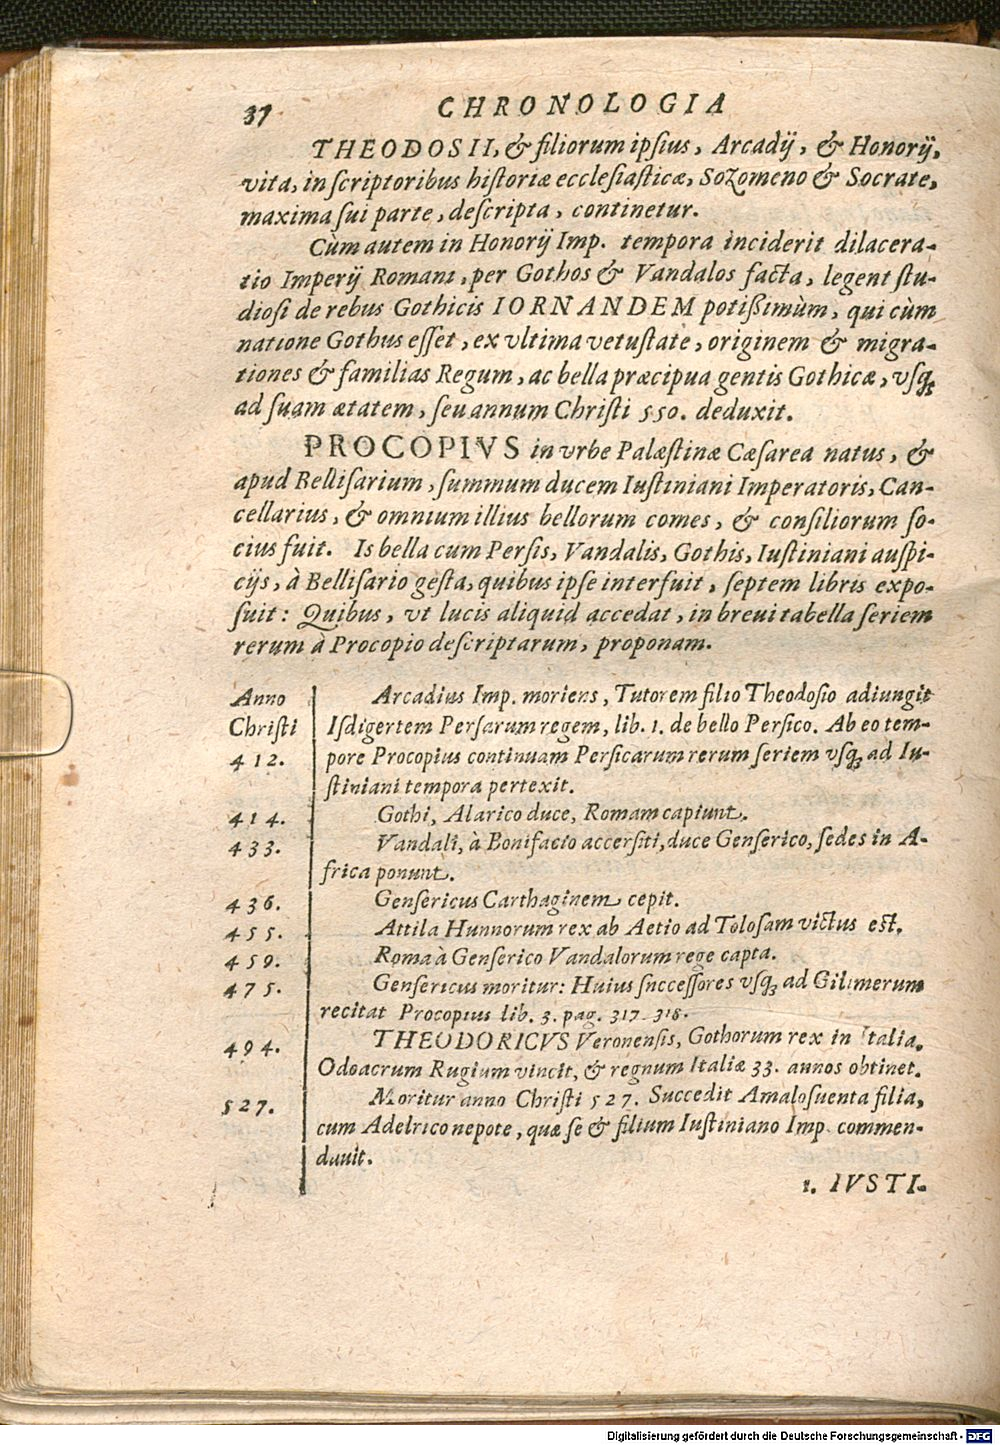 37 CHRONOLOGIA
THEODOSII, & filiorum ipsius, Arcadij, & Honorij,
vita, in scriptoribus historiæ ecclesiasticæ, Sozomeno & Socrate,
maxima sui parte, descripta, continetur.
Cùm autem in Honorij Imp. tempora inciderit dilacera-
tio Imperij Romani, per Gothos & Vandalos facta, legent stu-
diosi de rebus Gothicis IORNANDEM potißimùm, qui cùm
natione Gothus esset, ex vltima vetustate, originem & migra-
tiones & familias Regum, ac bella præcipua gentis Gothicæ, vsq;
ad suam ætatem, seu annum Christi 550. deduxit.
PROCOPIVS in vrbe Palæstinæ Cæsarea natus, &
apud Bellisarium, summum ducem Iustiniani Imperatoris, Can-
cellarius, & omnium illius bellorum comes, & consiliorum so-
cius fuit. Is bella cum Persis, Vandalis, Gothis, Iustiniani auspi-
cijs, à Bellisario gesta, quibus ipse interfuit, septem libris expo-
suit: Quibus, vt lucis aliquid accedat, in breui tabella seriem
rerum à Procopio descriptarum, proponam.
Anno Arcadius Imp. moriens, Tutorem filio Theodosio adiungit
Christi Isdigertem Persarum regem, lib. 1. de bello Persico. Ab eo tem-
412. pore Procopius continuam Persicarum rerum seriem vsq; ad Iu-
stiniani tempora pertexit.
414. Gothi, Alarico duce, Romam capiunt.
433. Vandali, à Bonifacio accersiti, duce Genserico, sedes in A-
frica ponunt.
436. Gensericus Carthaginem cepit.
455. Attila Hunnorum rex ab Aetio ad Tolosam victus est.
459. Roma à Genserico Vandalorum rege capta.
475. Gensericus moritur: Huius successores vsq; ad Gilimerum
recitat Procopius lib. 3. pag. 317 318.
494. THEODORICVS Veronensis, Gothorum rex in Italia,
Odoacrum Rugium vincit, & regnum Italiæ 33. annos obtinet.
527. Moritur anno Christi 527. Succedit Amalosuenta filia,
cum Adelrico nepote, quæ se & filium Iustiniano Imp. commen-
dauit.
1. IVSTI-
Digitalisierung gefördert durch die Deutsche Forschungsgemeinschaft - DFG